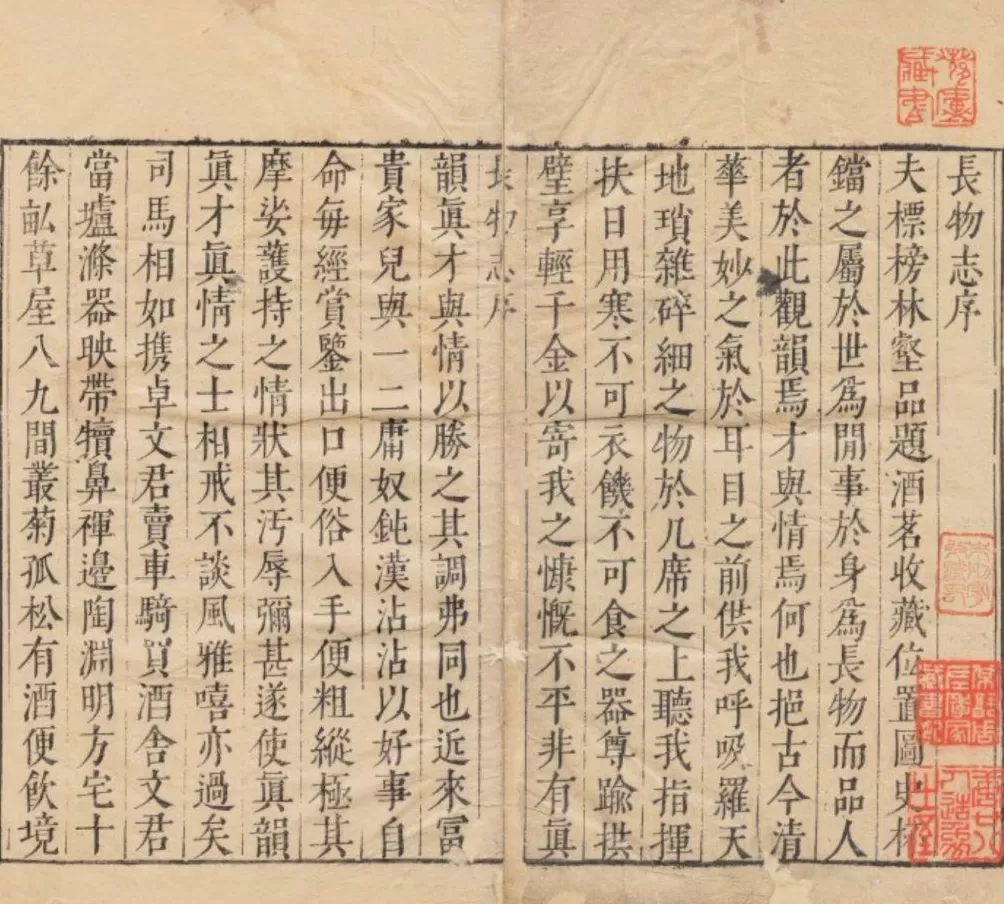 長物志序
夫標榜林壑品題酒茗收藏位置圖史杯
鐺之屬於世爲閒事於身爲長物而品人
者於此觀韻焉才與情焉何也挹古今清
華美妙之氣於耳目之前供我呼吸羅天
地瑣雜碎細之物於几席之上聽我指揮
挾日用寒不可衣饑不可食之器尊踰拱
璧享輕千金以寄我之慷慨不平非有眞
長物志序
韻眞才與情以勝之其調弗同也近來冨
貴家兒與一二庸奴鈍漢沾沾以好事自
命每經賞鑒出口便俗入手便粗縱極其
摩娑護持之情狀其汚辱彌甚遂使眞韻
眞才眞情之士相戒不談風雅嘻亦過矣
司馬相如携卓文君賣車騎買酒舍文君
當壚滌器映帶犢鼻褌邊陶淵明方宅十
餘畝草屋八九間叢菊孤松有酒便飲境